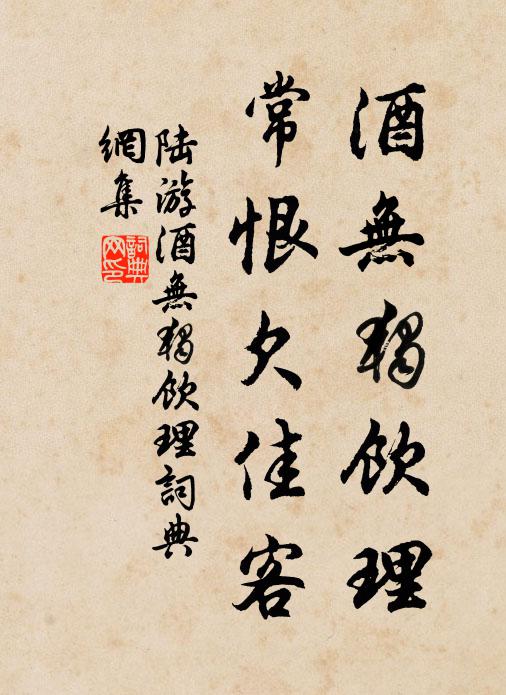 酒無獨飲理
常恨欠佳客
陆游酒無獨飲理詞典
網集
詞典
网印